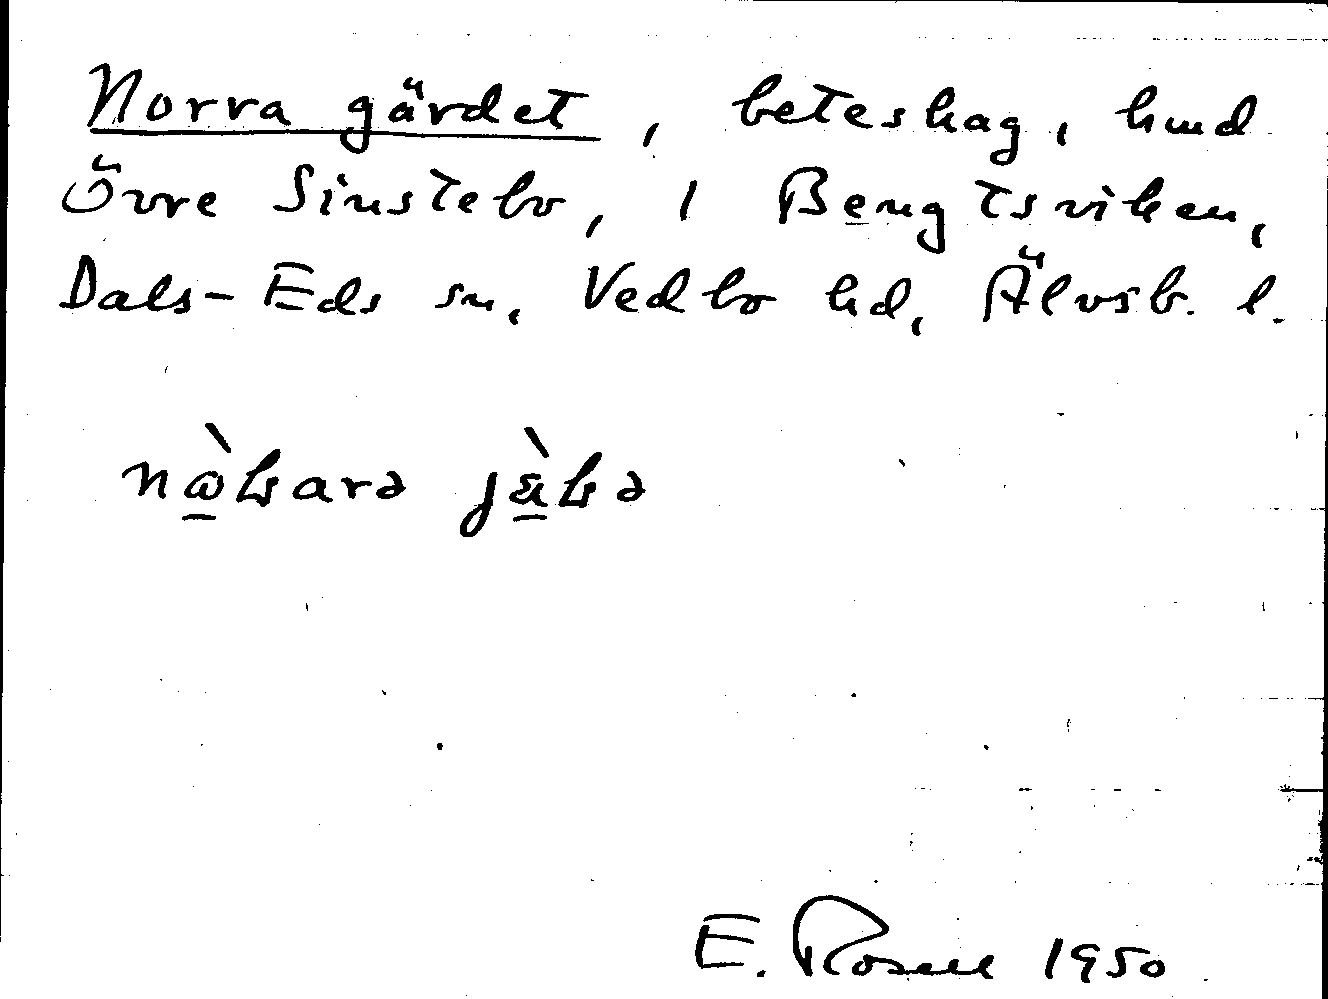 Norra gärdet, beteshag, hmd
Övre Sinstebo, 1 Bengtsviken,
Dals-Eds sn, Vedbo hd, Älvsb. l.
E. Rosell 1950